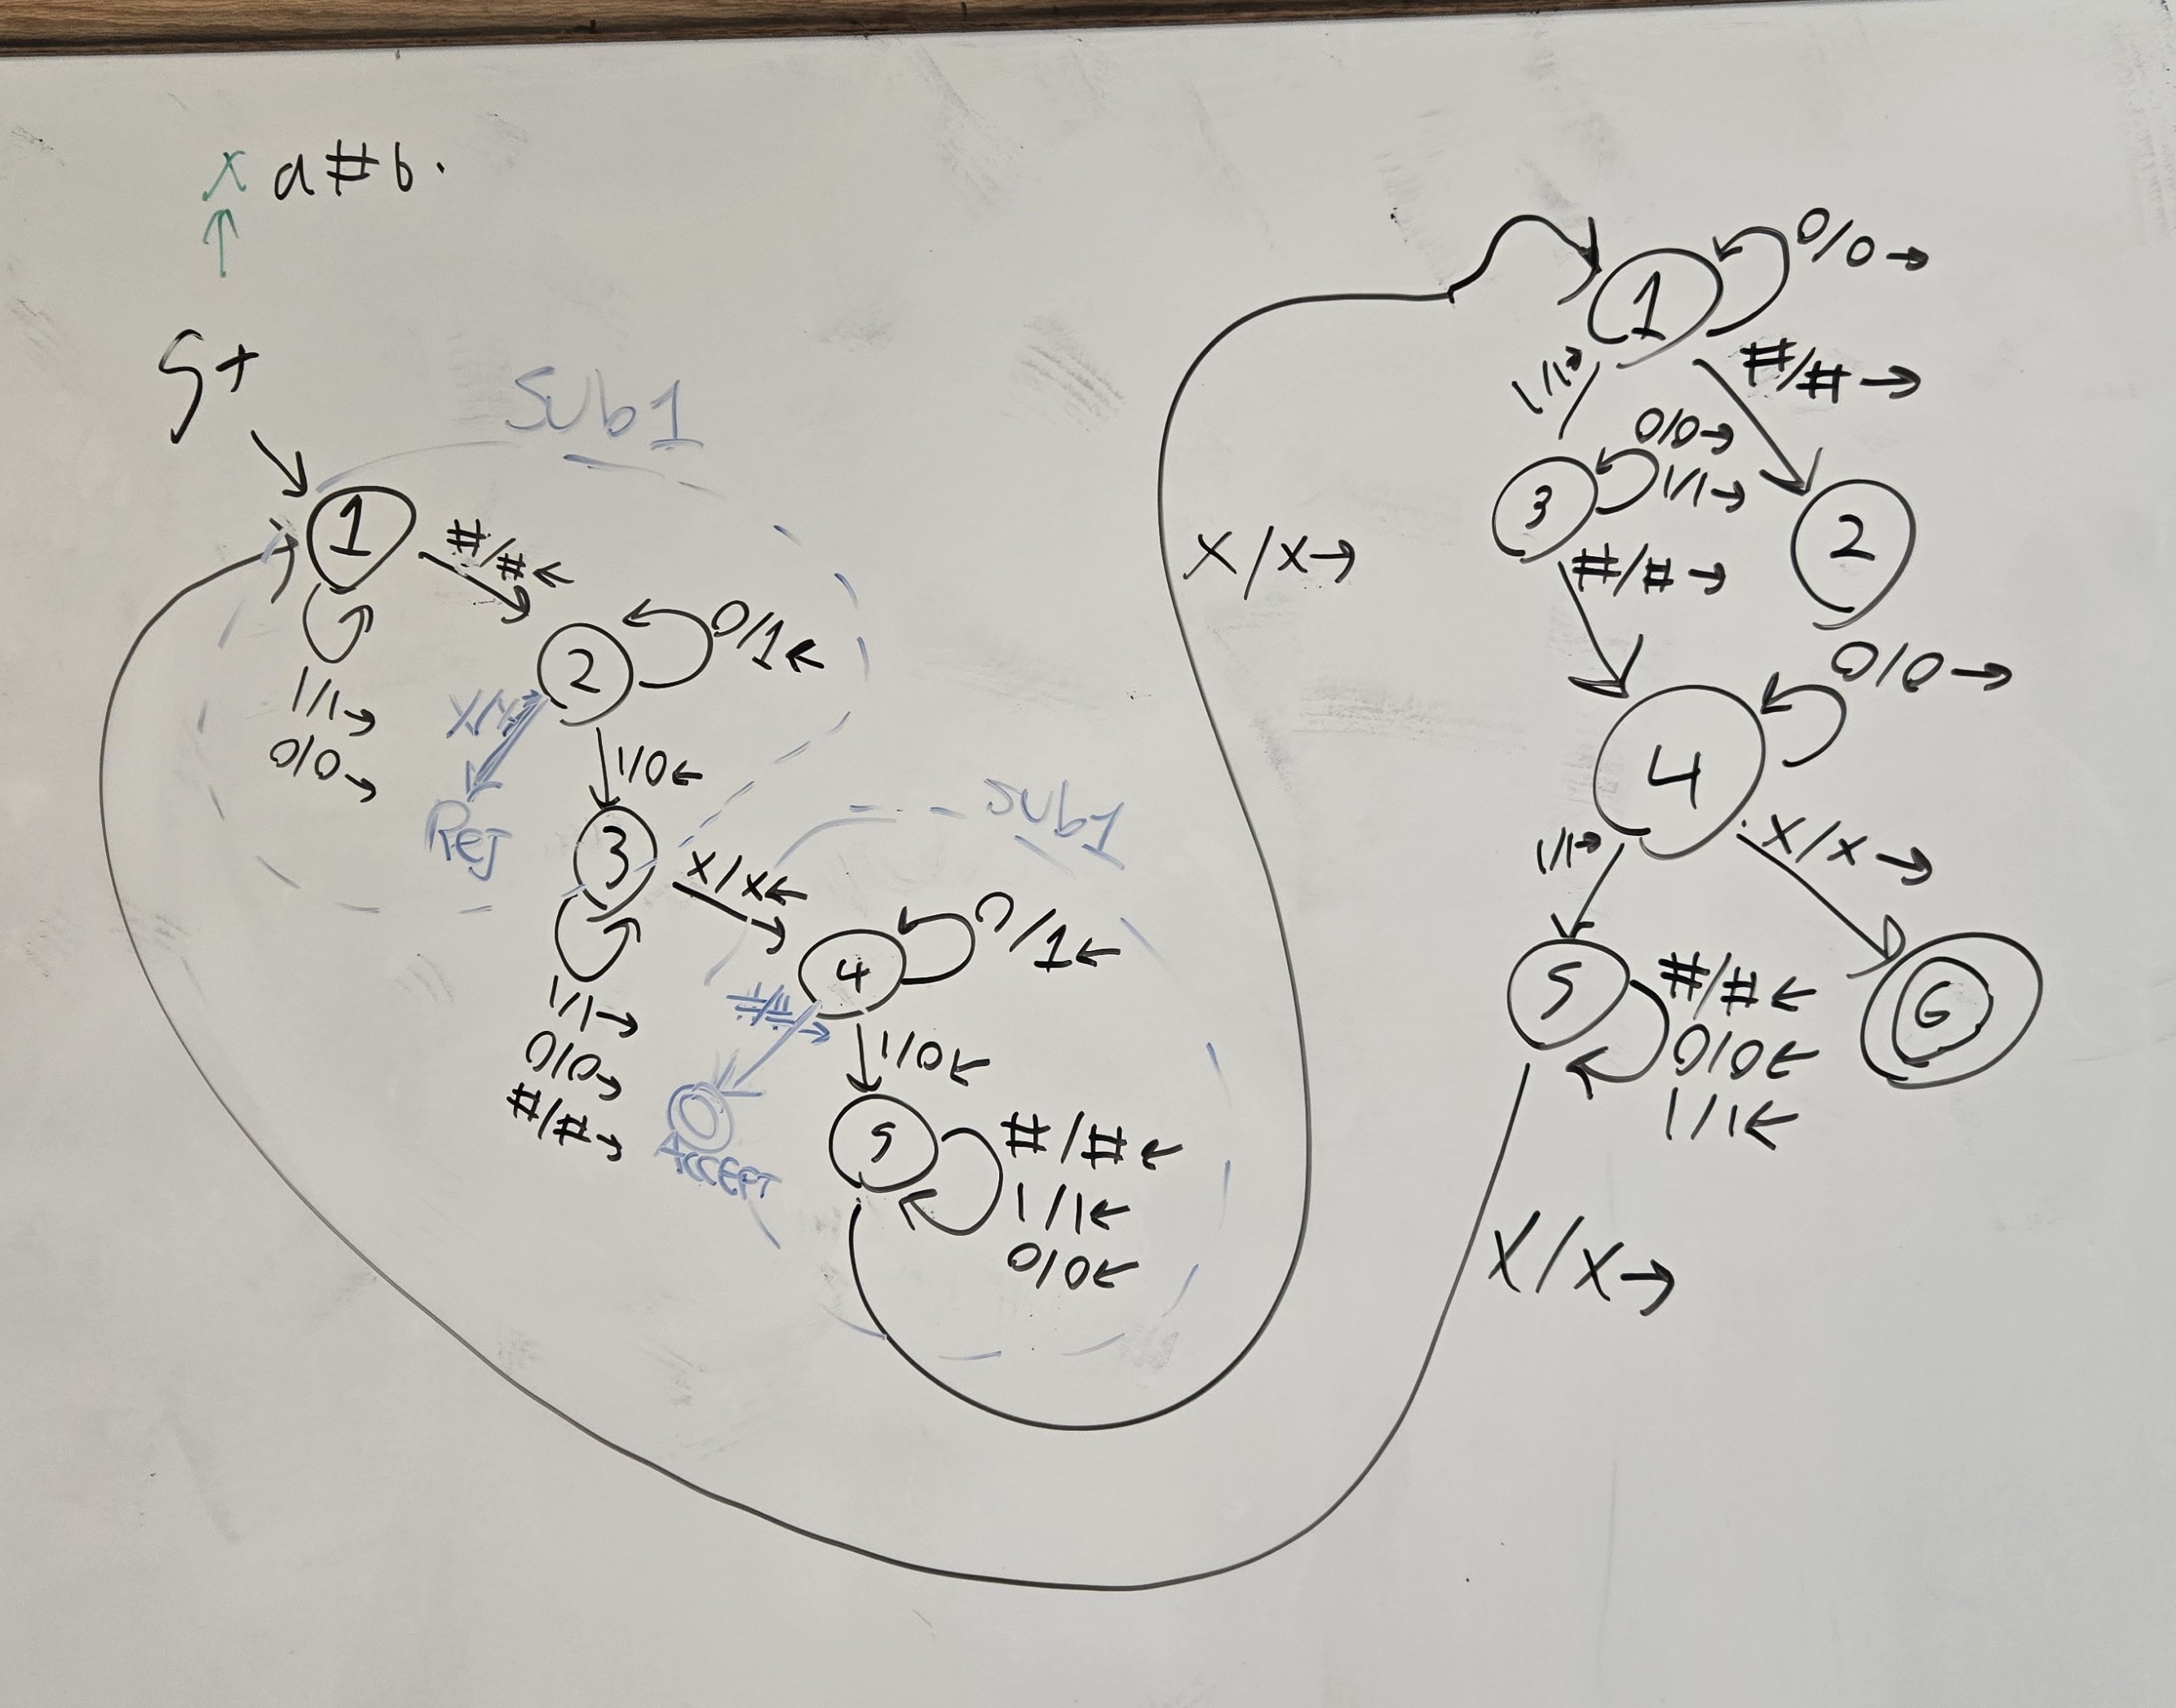 x a # b .
St
Sub1
1
#/# ←
1/1 →
0/0 →
2
0/1 ←
Rej
1/0 ←
3
x/x ←
1/1 →
0/0 →
#/# →
Sub1
4
0/1 ←
#/# →
Accept
1/0 ←
5
#/# ←
1/1 ←
0/0 ←
x/x →
1
0/0 →
#/# →
1/1 →
3
0/0 →
1/1 →
#/# →
2
4
0/0 →
x/x →
1/1 →
5
#/# ←
0/0 ←
1/1 ←
6
x/x →